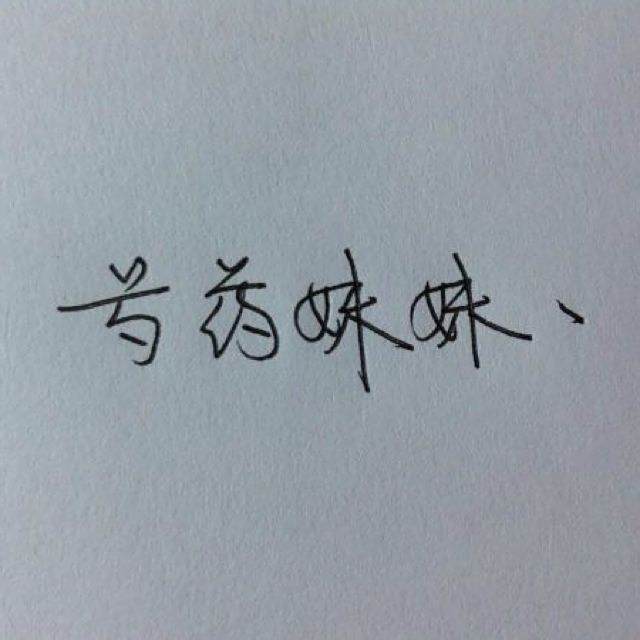 芍药妹妹、